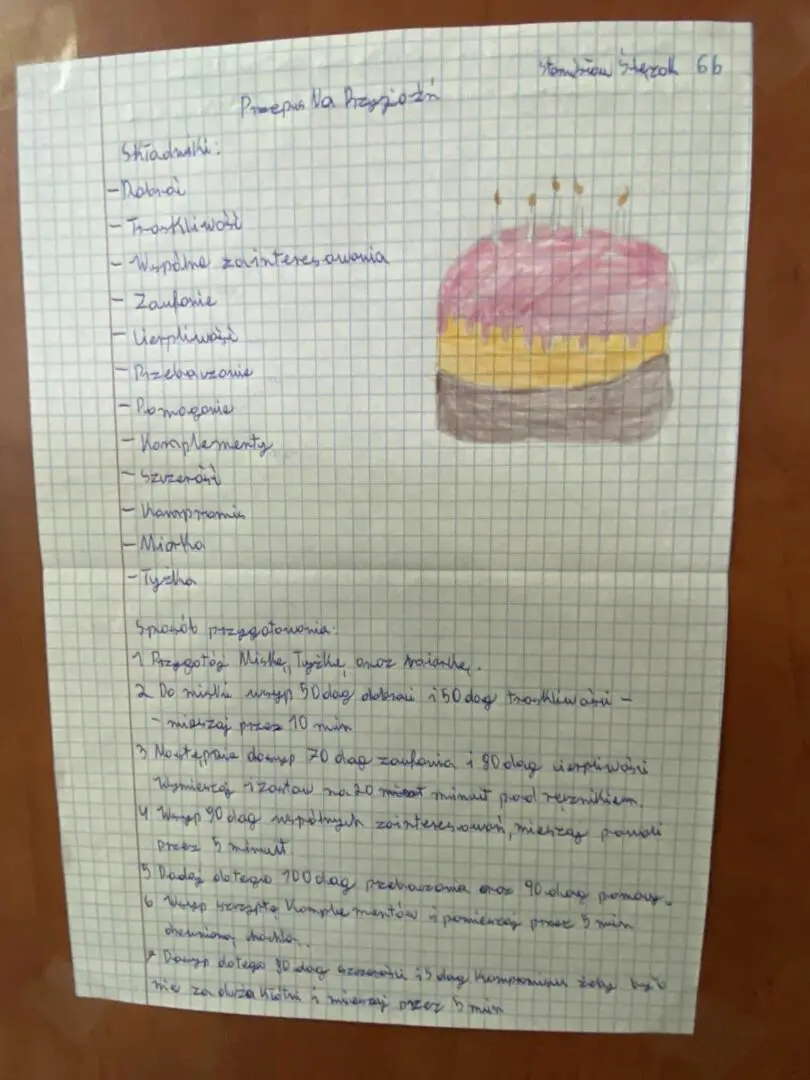 Stanisław Ślęzak 6b
Przepis Na Przyjaźń
Składniki:
- Dobroć
- Troskliwość
- Wspólne zainteresowania
- Zaufanie
- Cierpliwość
- Przebaczanie
- Pomaganie
- Komplementy
- Szczerość
- Kompromis
- Miarka
- Łyżka
Sposób przygotowania:
1 Przygotój Miskę, Łyżkę, oraz miarkę.
2 Do miski wsyp 50 dag dobroci i 50 dag troskliwości -
- mieszaj przez 10 min
3 Następnie dosyp 70 dag zaufania i 90 dag cierpliwości
Wymieszaj i zostaw na 20 minut pod ręcznikiem.
4 Wsyp 90 dag wspólnych zainteresowań, mieszaj powoli
przez 5 minut.
5 Dodaj dotego 100 dag przebaczania oraz 90 dag pomocy.
6 Wsyp szczyptę Komplementów i pomieszaj przez 5 min
drewnianą
Dosyp dotego 90 dag szczerości i 5 dag Kompromisu żeby było
nie za duża kłótni i mieszaj przez 5 min